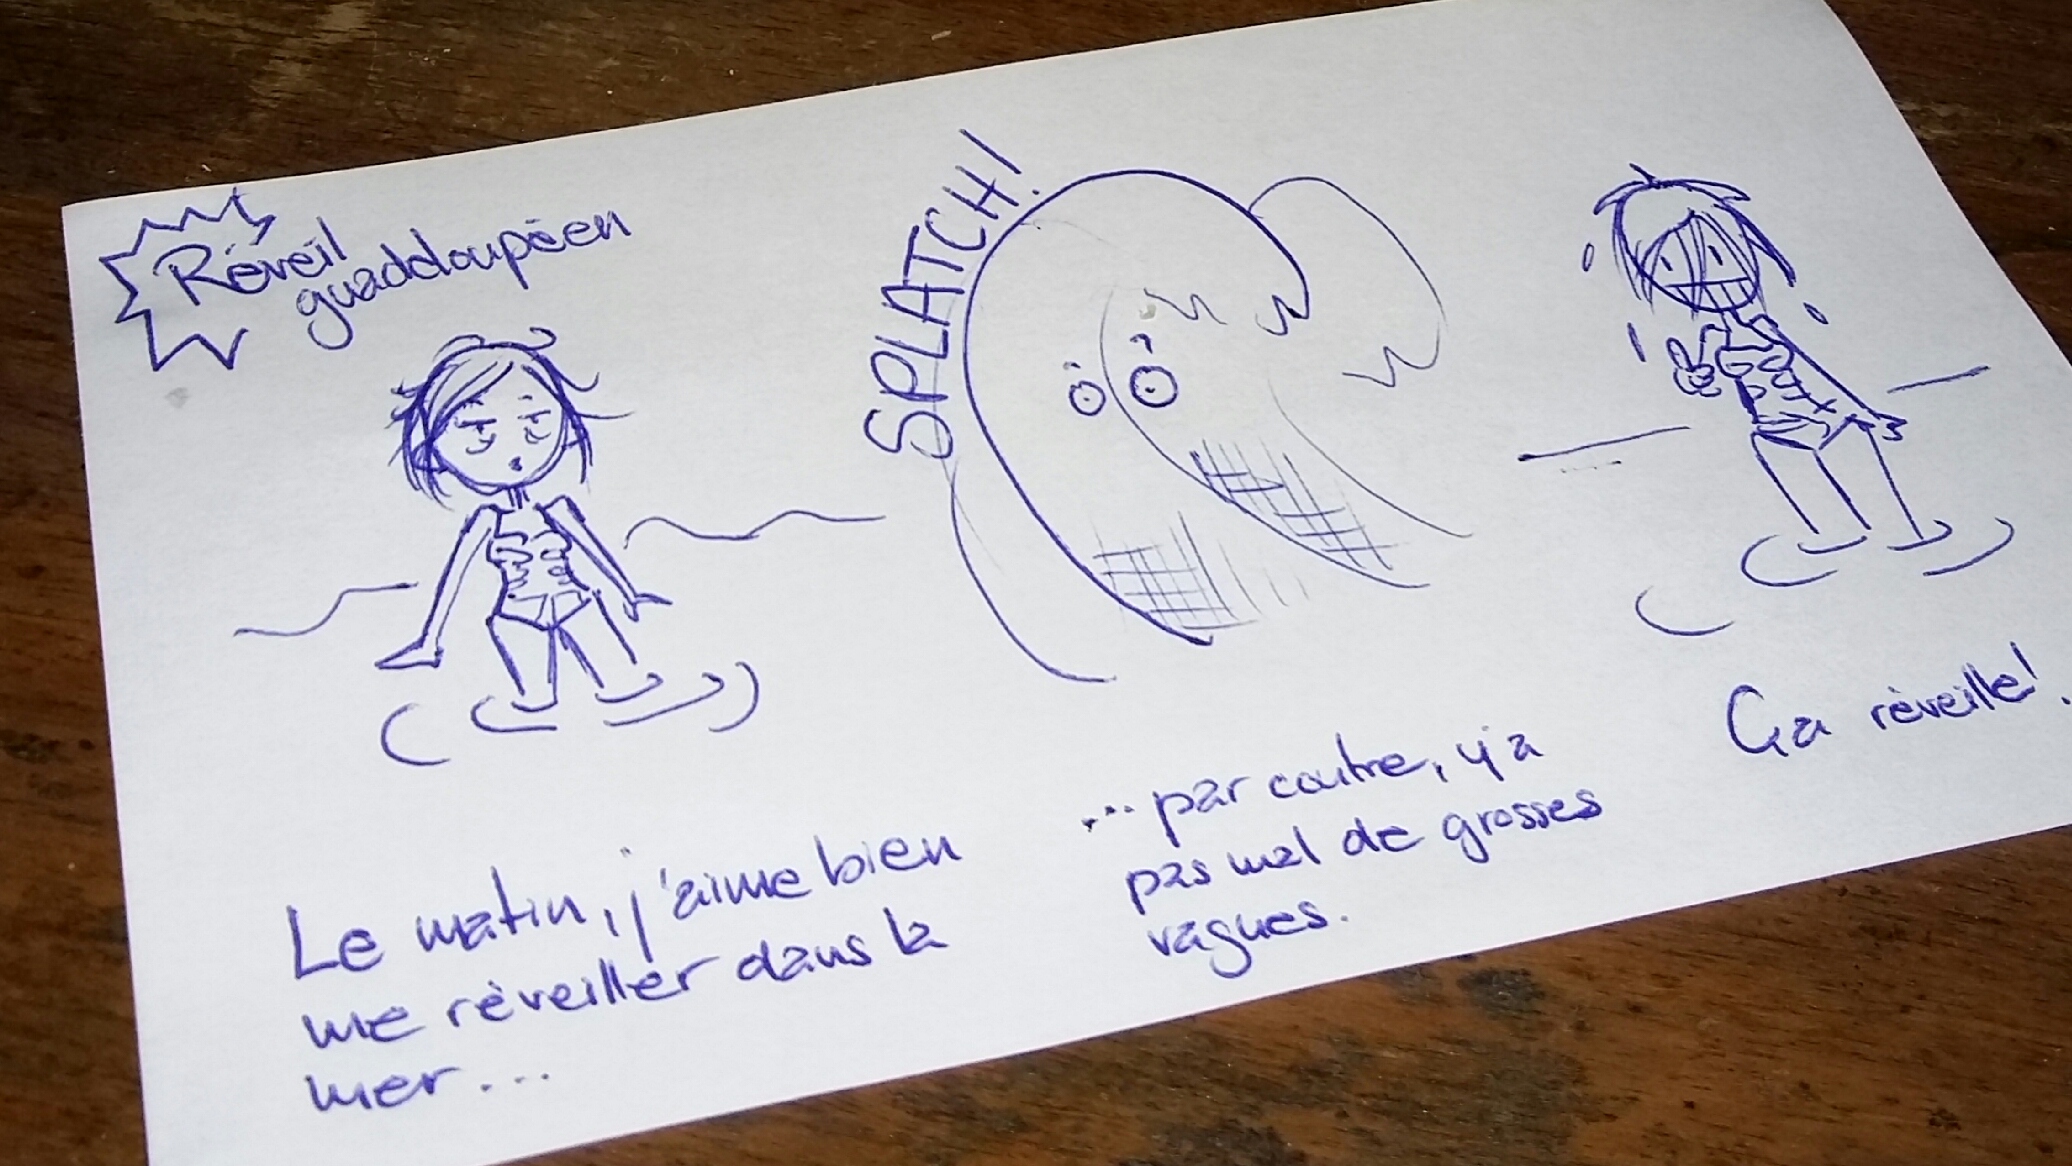 Réveil
guadeloupéen
SPLATCH!
Le matin, j'aime bien
me réveiller dans la
mer...
...par contre, y'a
pas mal de grosses
vagues.
Ça réveille!